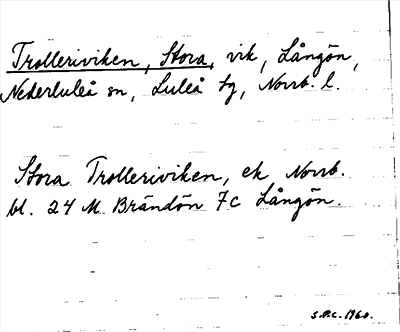 Trolleriviken, Stora, vik, Långön,
Nederluleå sn, Luleå tg, Norrb. l.
Stora Trolleriviken, ek Norrb.
bl. 24 M Brändön 7c Långön.
S.P.C. 1960.